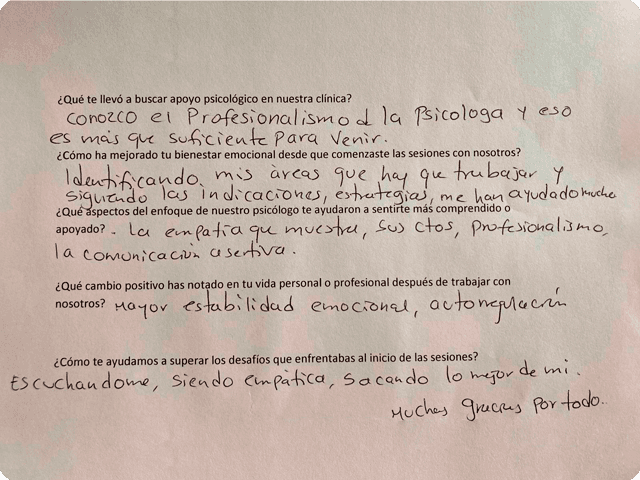 ¿Qué te llevó a buscar apoyo psicológico en nuestra clínica?
conozco el Profesionalismo d la Psicologa y eso
es más que suficiente para venir.
¿Cómo ha mejorado tu bienestar emocional desde que comenzaste las sesiones con nosotros?
Identificando mis áreas que hay que trabajar y
siguiendo las indicaciones, estrategias, me han ayudado mucho
¿Qué aspectos del enfoque de nuestro psicólogo te ayudaron a sentirte más comprendido o
apoyado? . La empatia que muestra, sus ctos, profesionalismo,
la comunicación asertiva.
¿Qué cambio positivo has notado en tu vida personal o profesional después de trabajar con
nosotros? Mayor estabilidad emocional, autorregulación
¿Cómo te ayudamos a superar los desafíos que enfrentabas al inicio de las sesiones?
Escuchandome, siendo empática, sacando lo mejor de mi.
Muchas gracias por todo..